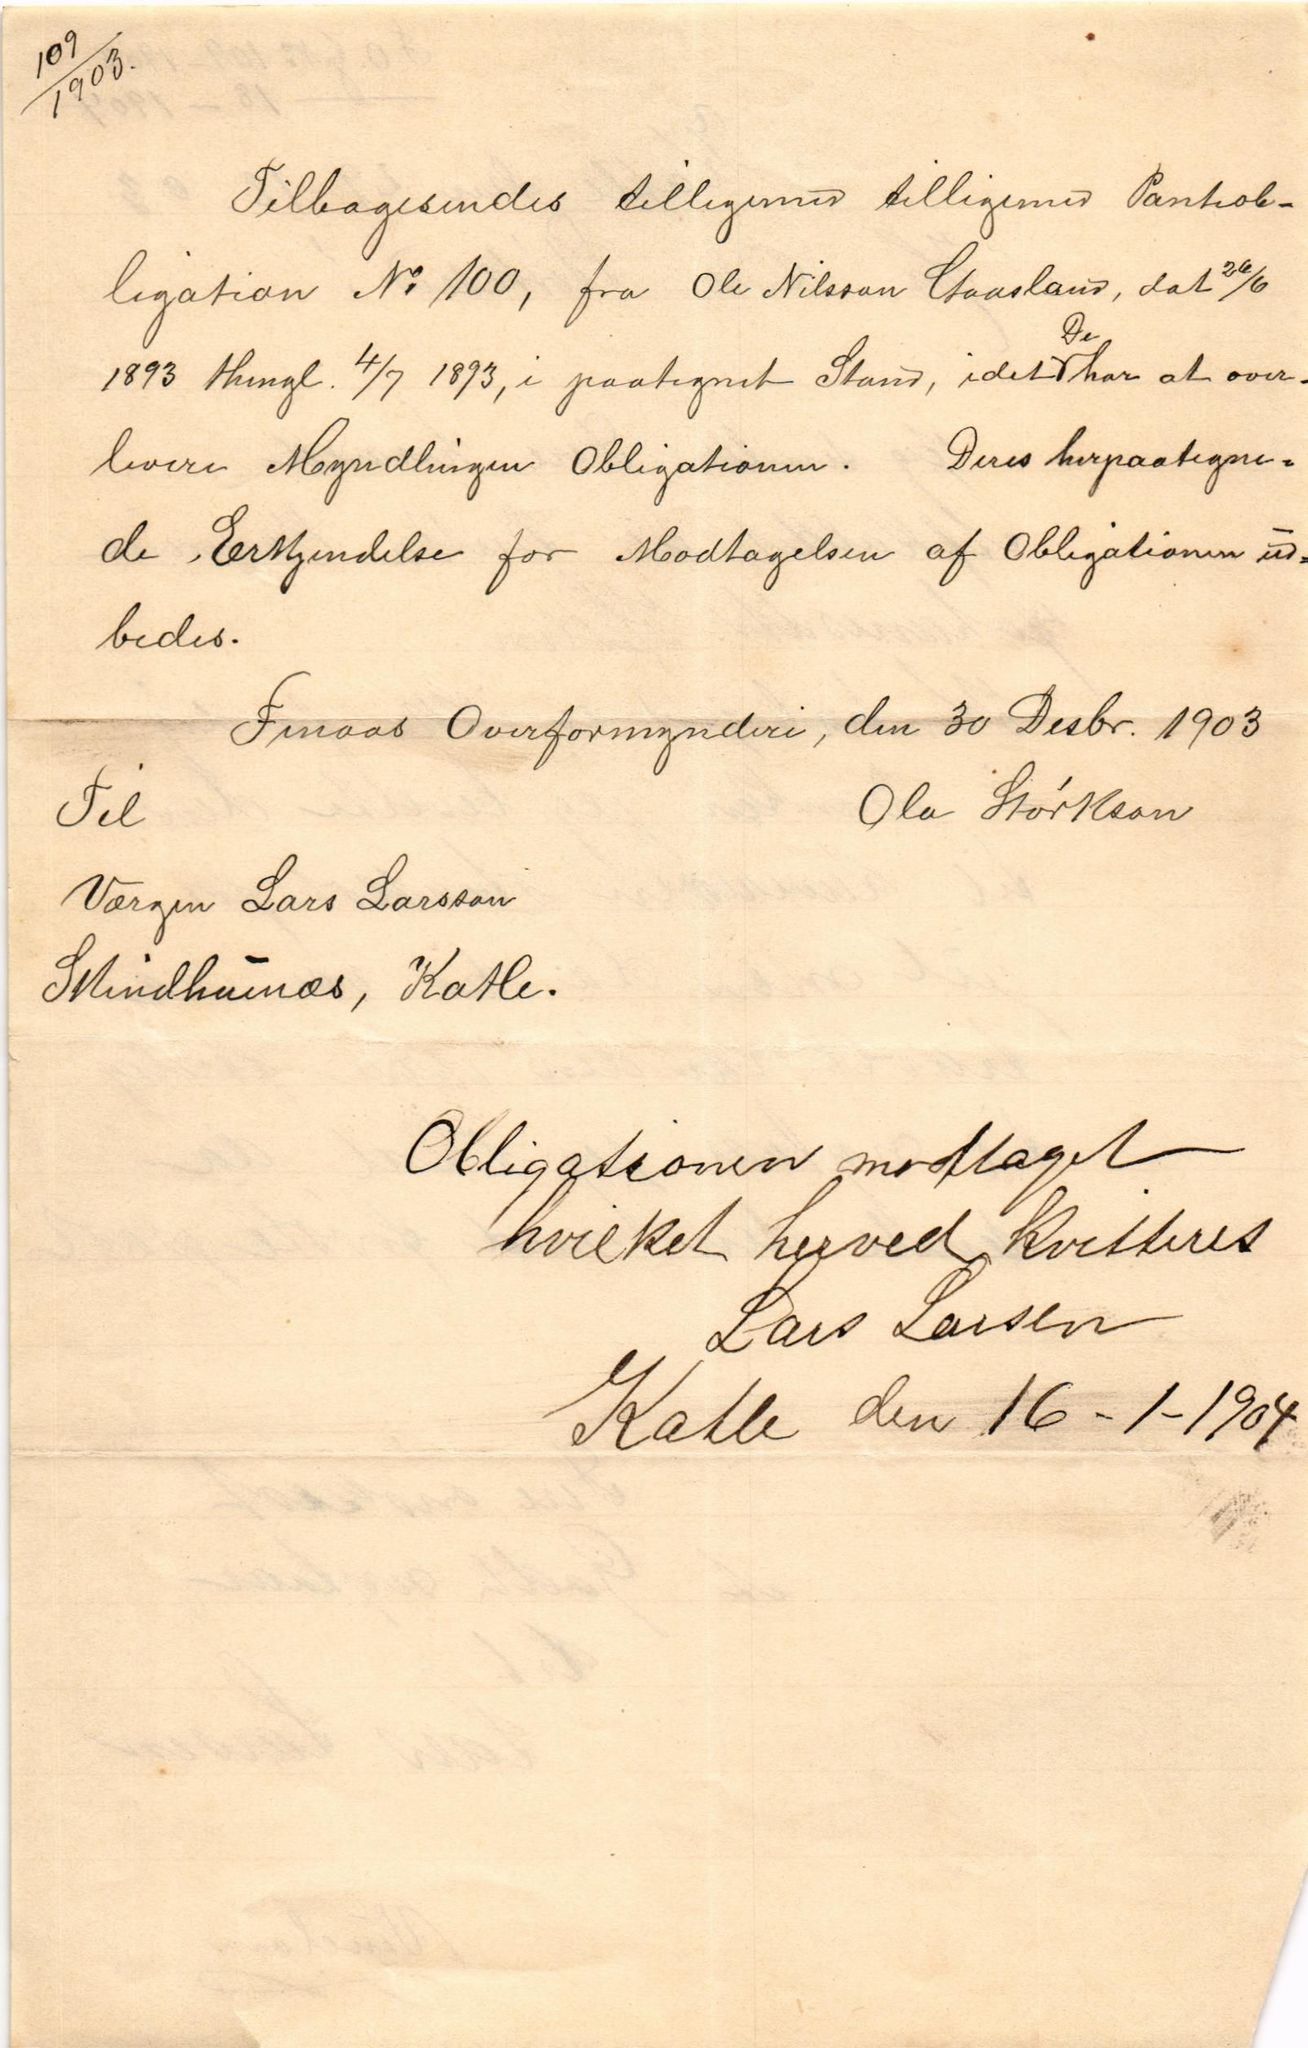 109/1903.
Tilbagesendes tilligemed tilligemed Pantob-
ligation No 100, fra Ole Nilsson Staasland, dat 26/6
1893 thingl. 4/7 1893, i paategnet Stand, idet De har at over-
levere Myndlingen Obligationen. Deres herpaategne-
de Erkjendelse for Modtagelsen af Obligationen ud-
bedes.
Finaas Overformynderi, den 30 Desbr. 1903
Ola Størkson
Til
Værgen Lars Larsson
Skindhuenæs, Katle.
Obligationen modtaget
hvilket herved kvitteres
Lars Larsen
Katle den 16-1-1904